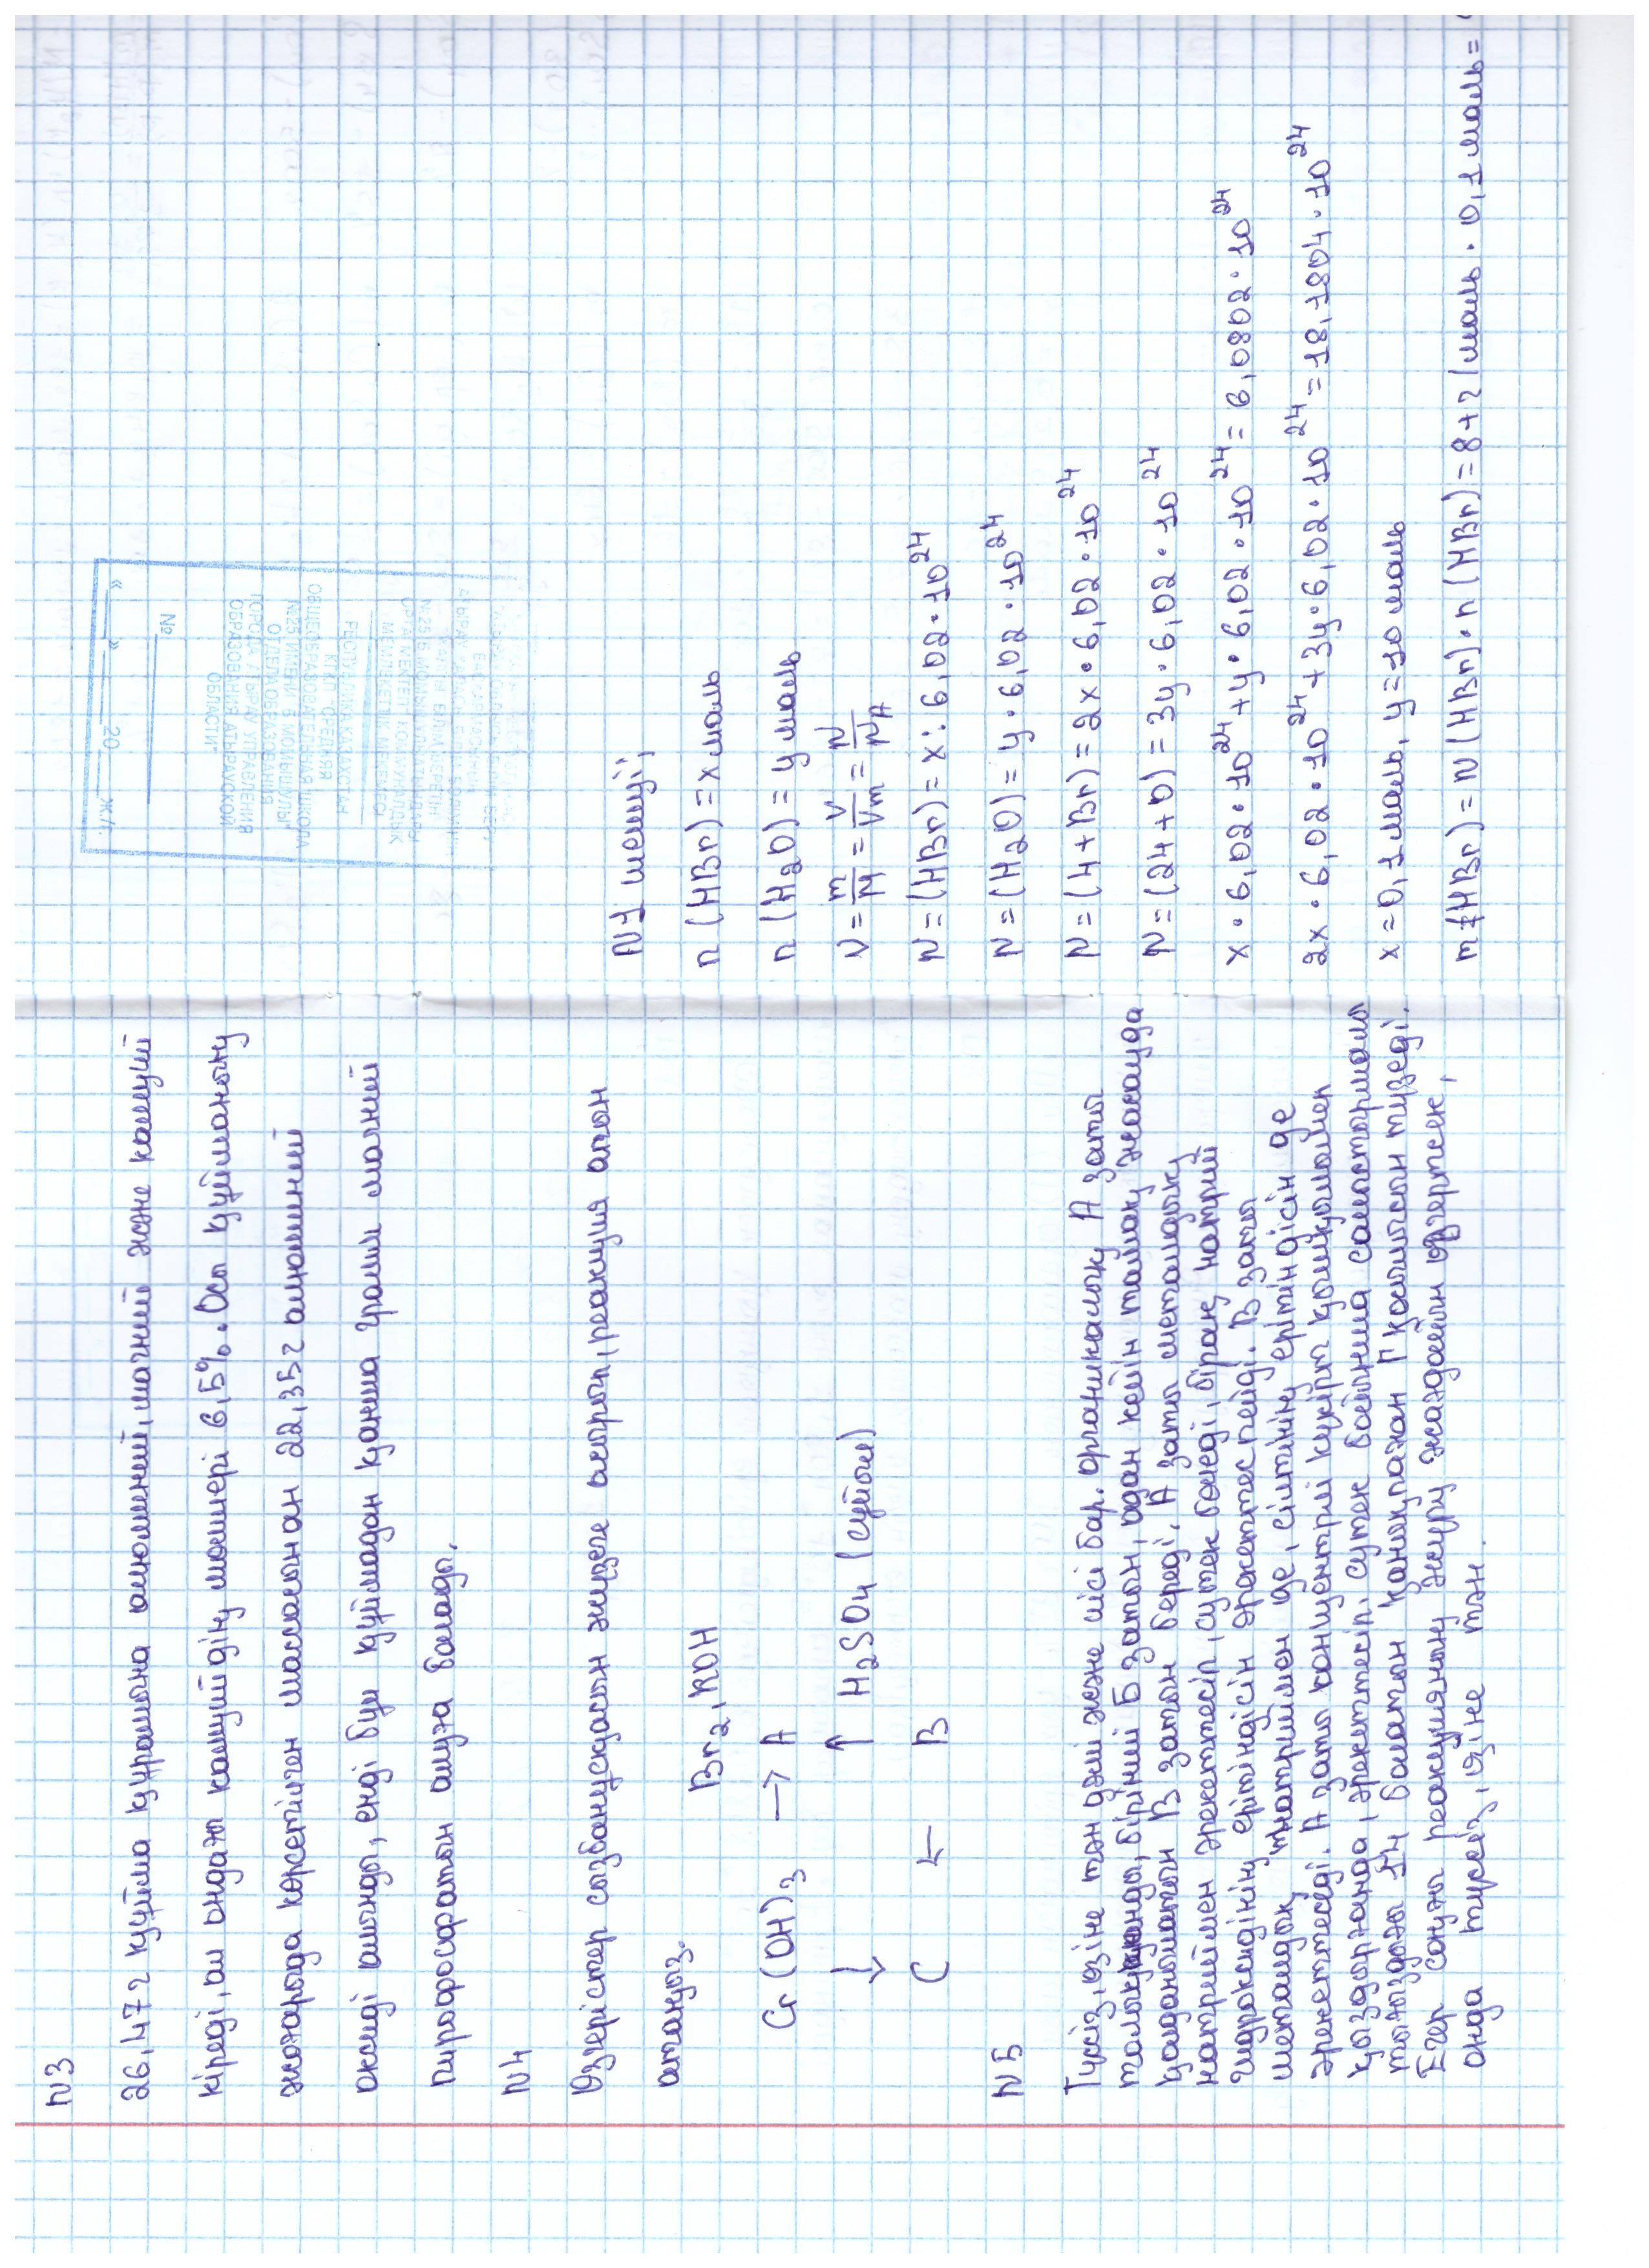 N3
26,47г құйма құрамына алюминий, магний және кальций
кіреді, ал ондағы кальцийдің мөлшері 6,5%. Осы құйманың
жоғарыда көрсетілген массасынан 22,35г алюминий
оксиді алынды, енді бұл құймадан қанша грамм магний
пирофосфатын алуға болады.
N4
Өзгерістер созбанұсқасын жүзеге асырып, реакция атын
атаңыз.
Br2, KOH
Cr(OH)3 → A
↓ ↑ H2SO4 (сұйық)
C ← B
N5
Түссіз, өзіне тән дәмі және иісі бар. органикалық А заты
бірінші Б затын, одан кейін тамақ жасауда
қолданылатын В затын береді. А заты металдық
натриймен әрекеттесіп, сутек бөледі, бірақ, натрий
гидроксидінің ерітіндісін әрекеттеспейді. В заты
металдық натриймен де, сілтінің ерітіндісін де
әрекеттеседі. А заты концентрлі күкірт қышқылымен
қыздырғанда, әрекеттесіп, сутек бойынша салыстырмалы
тығыздығы 14 болатын қанықпаған Г қосылысын түзеді.
Егер соңғы реакцияның жүру жағдайын өзгертсек,
онда түссіз, өзіне тән.
N1 шешуі;
n (HBr) = x моль
n (H2O) = y моль
ν = m/M = V/Vm = N/NA
N = (HBr) = x : 6,02 · 10^24
N = (H2O) = y · 6,02 · 10^24
N = (4+Br) = 2x · 6,02 · 10^24
N = (24+0) = 3y · 6,02 · 10^24
x · 6,02 · 10^24 + y · 6,02 · 10^24 = 6,0802 · 10^24
2x · 6,02 · 10^24 + 3y · 6,02 · 10^24 = 18,1804 · 10^24
x = 0,1 моль, y = 10 моль
m (HBr) = N (HBr) · n (HBr) = 8+2 / моль · 0,1 моль =
« » 20 ж/г.
№
РЕСПУБЛИКА КАЗАХСТАН
КГКП "СРЕДНЯЯ
ОБЩЕОБРАЗОВАТЕЛЬНАЯ ШКОЛА
№25 ИМЕНИ Б МОМЫШУЛЫ"
ОТДЕЛА ОБРАЗОВАНИЯ
ГОРОДА АТЫРАУ УПРАВЛЕНИЯ
ОБРАЗОВАНИЯ АТЫРАУСКОЙ
ОБЛАСТИ"